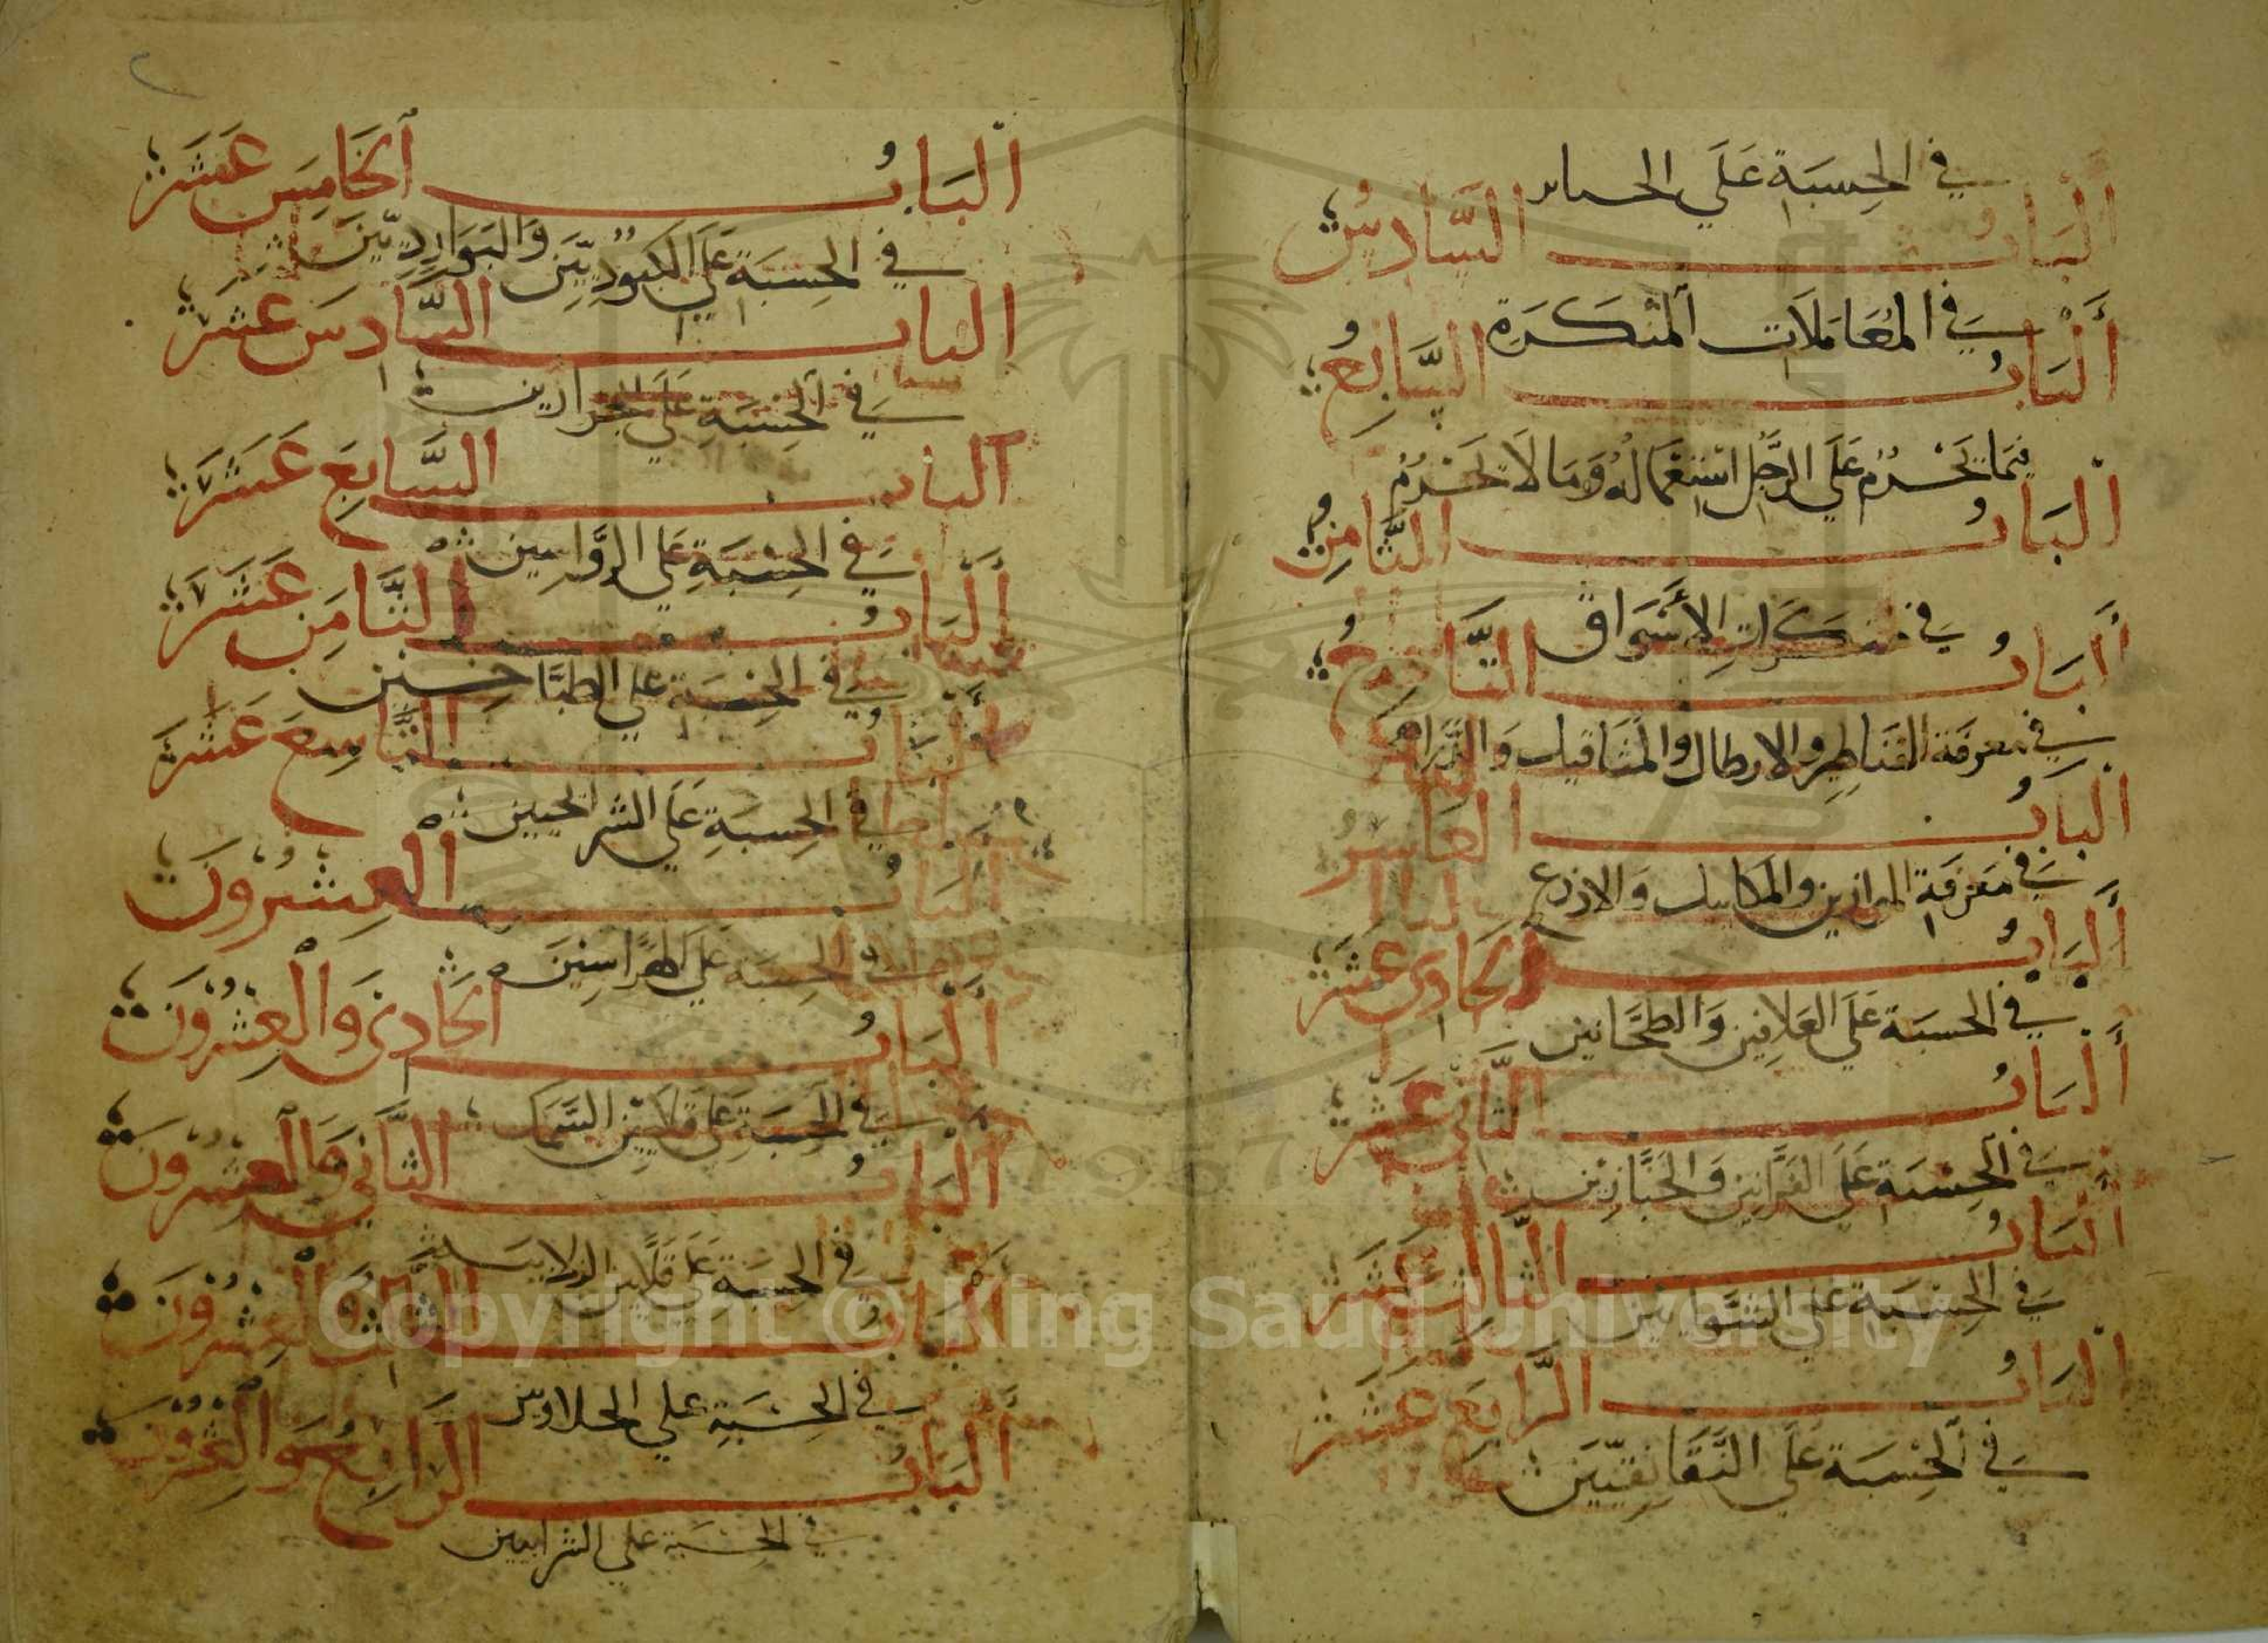 في الحِسبَة عَلَي الجنائز
البَابُ السَّادسُ
في المُعَامَلَات المُنكَرَةِ
البَابُ السَّابعُ
فيما يَحْرُم عَلَي الرَّجُل استعمالهُ وَمَا لَا يَحْرُمُ
البَابُ الثَّامِنُ
في منكَرَات الأَسْوَاق
البَابُ التَّاسعُ
في معرفة القنَاطِير والارطال والمثَاقيل وَالدَّراهم
البَابُ العَاشر
في مَعْرفَة الموازين والمكاييل وَالاذرع
البَابُ الحَادي عَشَر
في الحسبَة عَلَي العَلافِين وَالطحَّانين
البَابُ الثَّاني عَشَر
في الحِسْبَة عَلَي الفَرَّانين وَالخَبَّازِين
البَابُ الثَّالث عَشَر
في الحِسْبَة عَلَي الشَّوايين
البَابُ الرَّابع عَشَر
في الحِسْبَة عَلَي النَّقَانِقيّينَ
البَابُ الخَامِس عَشَر
في الحِسبَة عَلَي الكبُودِيّين وَالبَوَاردِيّينَ
البَاب السَّادسَ عَشَر
في الحِسْبَةِ عَلَي الجزارين
الباب السَّابعَ عَشَر
في الحِسْبَةِ عَلَي الرَّوَّاسِين
البَابُ الثَّامِن عَشَرَ
في الحِسْبَة عَلَي الطبَّاخِين
البَابُ التَّاسِعَ عَشَرَ
في الحِسبَةِ عَلَي الشرائحيين
البَابُ العِشرُونَ
في الحِسبَة عَلَي الهَرَّاسِينَ
البَابُ الحَادي وَالْعِشْرُونَ
في الحِسبَة عَلَي قلَايين السَّمَك
البَابُ الثَّاني وَالعشرُونَ
في الحِسبَة عَلَي قلَّايين الزلابيَة
البَابُ الثَّالث وَالْعِشْرُونَ
في الحِسْبَةِ علي الحلاويين
البَابُ الرابعُ وَالعِشْرُونَ
في الحِسْبَة علي الشرابيين
Copyright © King Saud University
1957
٢